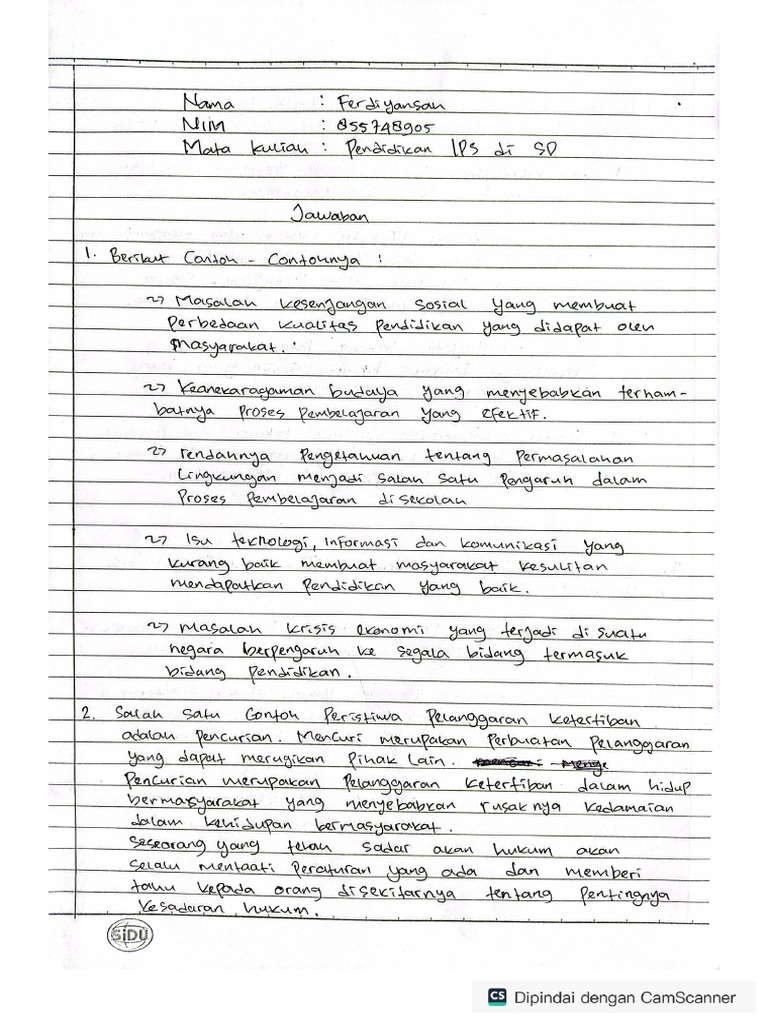 Nama : Ferdiyansah
NIM : 855748905
Mata kuliah : Pendidikan IPS di SD
Jawaban
1. Berikut Contoh - Contohnya :
=> Masalah kesenjangan sosial yang membuat
perbedaan kualitas pendidikan yang didapat oleh
masyarakat.
=> Keanekaragaman budaya yang menyebabkan terham-
batnya proses pembelajaran yang efektif.
=> rendahnya pengetahuan tentang permasalahan
lingkungan menjadi salah satu pengaruh dalam
proses pembelajaran disekolah
=> Isu teknologi, informasi dan komunikasi yang
kurang baik membuat masyarakat kesulitan
mendapatkan pendidikan yang baik.
=> Masalah krisis ekonomi yang terjadi di suatu
negara berpengaruh ke segala bidang termasuk
bidang pendidikan.
2. Salah satu contoh peristiwa pelanggaran ketertiban
adalah pencurian. Mencuri merupakan perbuatan pelanggaran
yang dapat merugikan pihak lain.
Pencurian merupakan pelanggaran ketertiban dalam hidup
bermasyarakat yang menyebabkan rusaknya kedamaian
dalam kehidupan bermasyarakat.
seseorang yang telah sadar akan hukum akan
selalu mentaati peraturan yang ada dan memberi
tahu kepada orang disekitarnya tentang pentingnya
kesadaran hukum.
SiDU
CS Dipindai dengan CamScanner